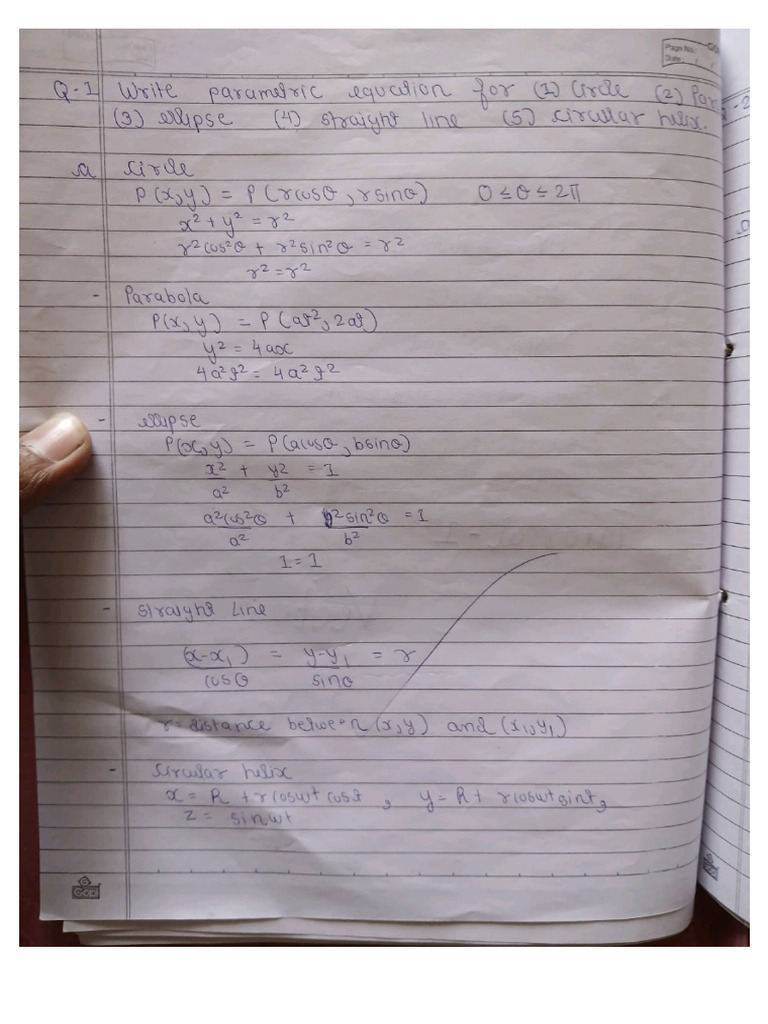 Page No.:
Date:
Q-1 Write parametric equation for (1) Circle (2) Par
(3) ellipse (4) straight line (5) circular helix.
a Circle
P(x,y) = P(rcosθ, rsinθ) 0 ≤ θ ≤ 2π
x² + y² = r²
r²cos²θ + r²sin²θ = r²
r² = r²
- Parabola
P(x,y) = P(at², 2at)
y² = 4ax
4a²t² = 4a²t²
- ellipse
P(x,y) = P(acosθ, bsinθ)
x²/a² + y²/b² = 1
a²cos²θ/a² + b²sin²θ/b² = 1
1 = 1
- Straight Line
(x-x₁)/cosθ = y-y₁/sinθ = r
r = distance between (x,y) and (x₁,y₁)
- Circular helix
x = R + rcoswt cost, y = R + rcoswt sint,
z = sinwt
Gopi